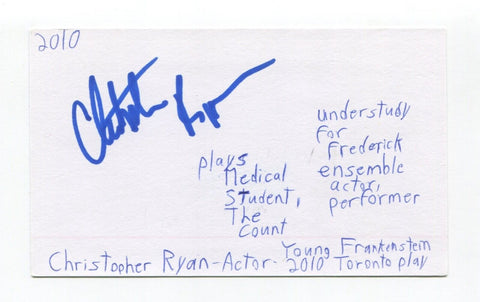 2010
Christopher Ryan
understudy
for
Frederick
ensemble
actor,
performer
plays
Medical
Student,
The
Count
Young Frankenstein
Christopher Ryan-Actor- 2010 Toronto play